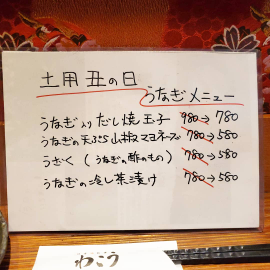 土用丑の日
うなぎメニュー
うなぎ入りだし焼玉子 980→780
うなぎの天ぷら山椒マヨネーズ 780→580
うざく(うなぎの酢のもの) 780→580
うなぎの冷し茶漬け 780→580